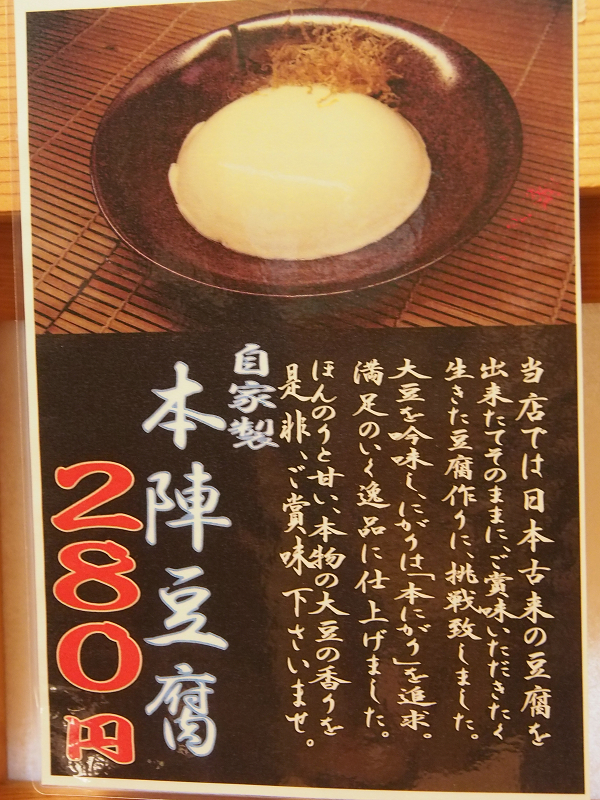 当店では日本古来の豆腐を
出来たてそのままに、ご賞味いただきたく
生きた豆腐作りに、挑戦致しました。
大豆を吟味し、にがりは「本にがり」を追求。
満足のいく逸品に仕上げました。
ほんのりと甘い、本物の大豆の香りを
是非、ご賞味下さいませ。
自家製
本陣豆腐
280円